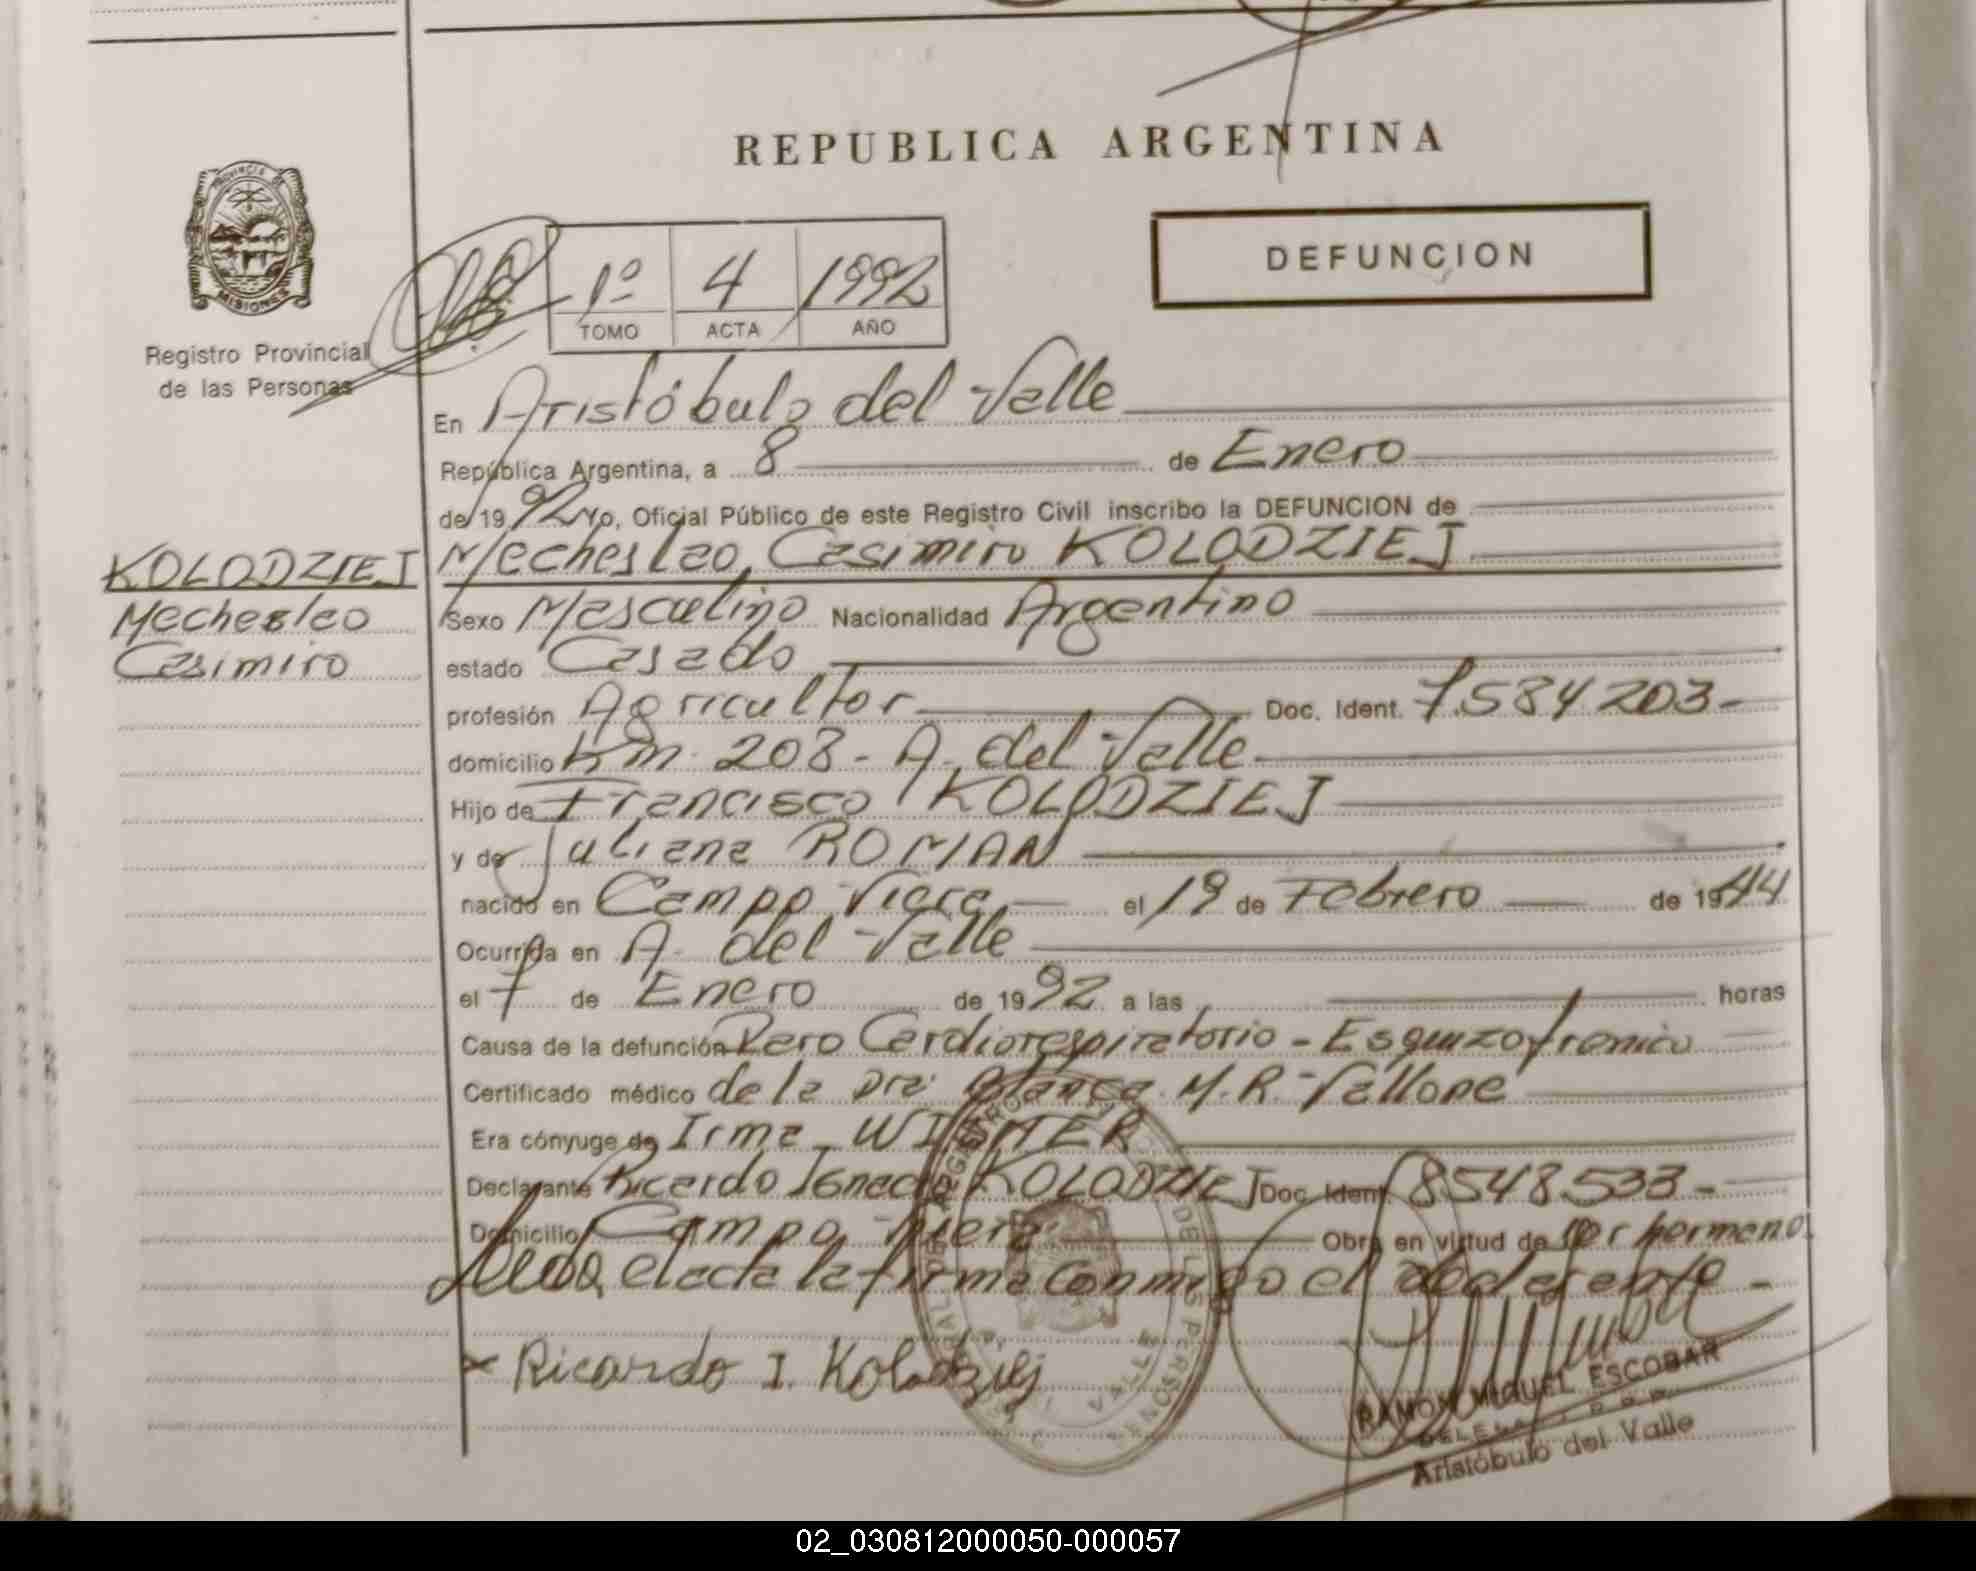 REPUBLICA ARGENTINA
PROVINCIA DE
MISIONES
Registro Provincial
de las Personas
DEFUNCION
1º 4 1992
TOMO ACTA AÑO
En Aristóbulo del Valle
República Argentina, a 8 de Enero
de 1992 Yo, Oficial Público de este Registro Civil inscribo la DEFUNCION de
KOLODZIEJ
Mechesleo
Casimiro
Mechesleo Casimiro KOLODZIEJ
Sexo Masculino Nacionalidad Argentino
estado Casado
profesión Agricultor Doc. Ident. 7.584203-
domicilio Km. 208 - A. del Valle
Hijo de Francisco KOLODZIEJ
y de Juliana ROMAN
nacido en Campo Viera el 19 de Febrero de 1944
Ocurrida en A. del Valle
el 7 de Enero de 1992 a las horas
Causa de la defunción Paro Cardiorespiratorio - Esquizofrenico
Certificado médico de la Dra. Blanca M. R. Vallone
Era cónyuge de Irma
Declarante Ricardo Ignacio KOLODZIEJ Doc. Ident. 8548.533-
Domicilio Campo Viera Obra en virtud de ser hermano
el acta la firma conmigo el
Ricardo I. Kolodziej
RAMON MIGUEL ESCOBAR
Aristóbulo del Valle
02_030812000050-000057